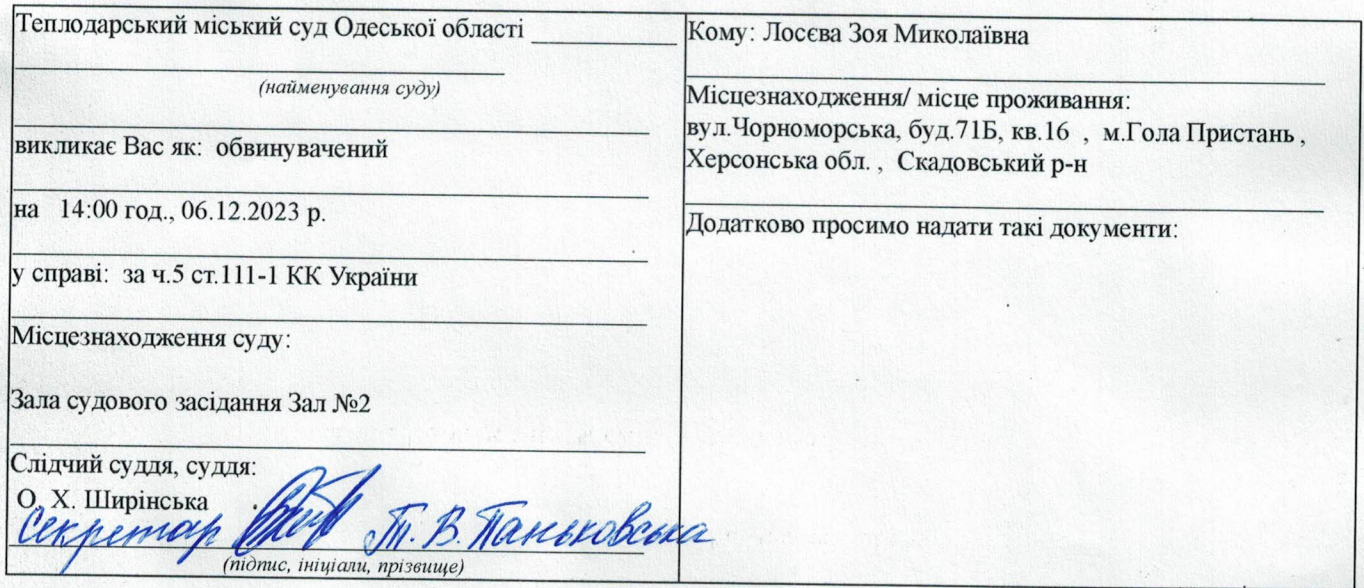 Теплодарський міський суд Одеської області
(найменування суду)
викликає Вас як: обвинувачений
на 14:00 год., 06.12.2023 р.
у справі: за ч.5 ст.111-1 КК України
Місцезнаходження суду:
Зала судового засідання Зал №2
Слідчий суддя, суддя:
О. Х. Ширінська
Секретар Т. В. Паньковська
(підпис, ініціали, прізвище)
Кому: Лосєва Зоя Миколаївна
Місцезнаходження/ місце проживання:
вул.Чорноморська, буд.71Б, кв.16 , м.Гола Пристань ,
Херсонська обл. , Скадовський р-н
Додатково просимо надати такі документи: